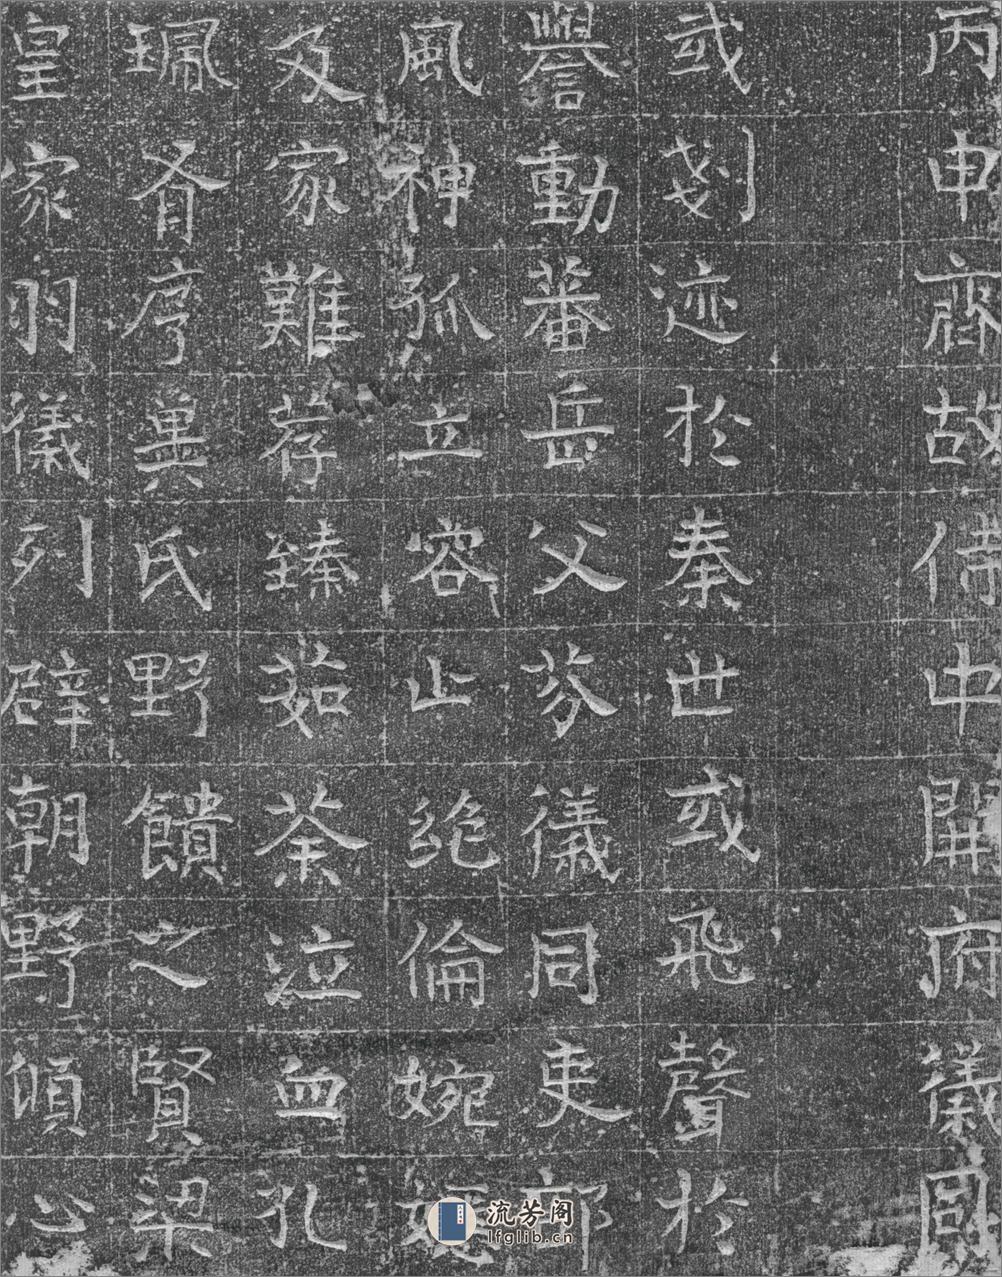 丙申齊故侍中開府儀同
或剗迹於秦世或飛聲於
譽動蕃岳父芬儀同吏部
風神孤立容止絶倫婉
及家難荐臻茹荼泣血孔
珮胥序兾氏野饋之賢梁
皇家羽儀列辟朝野傾心
流芳阁
lfglib.cn